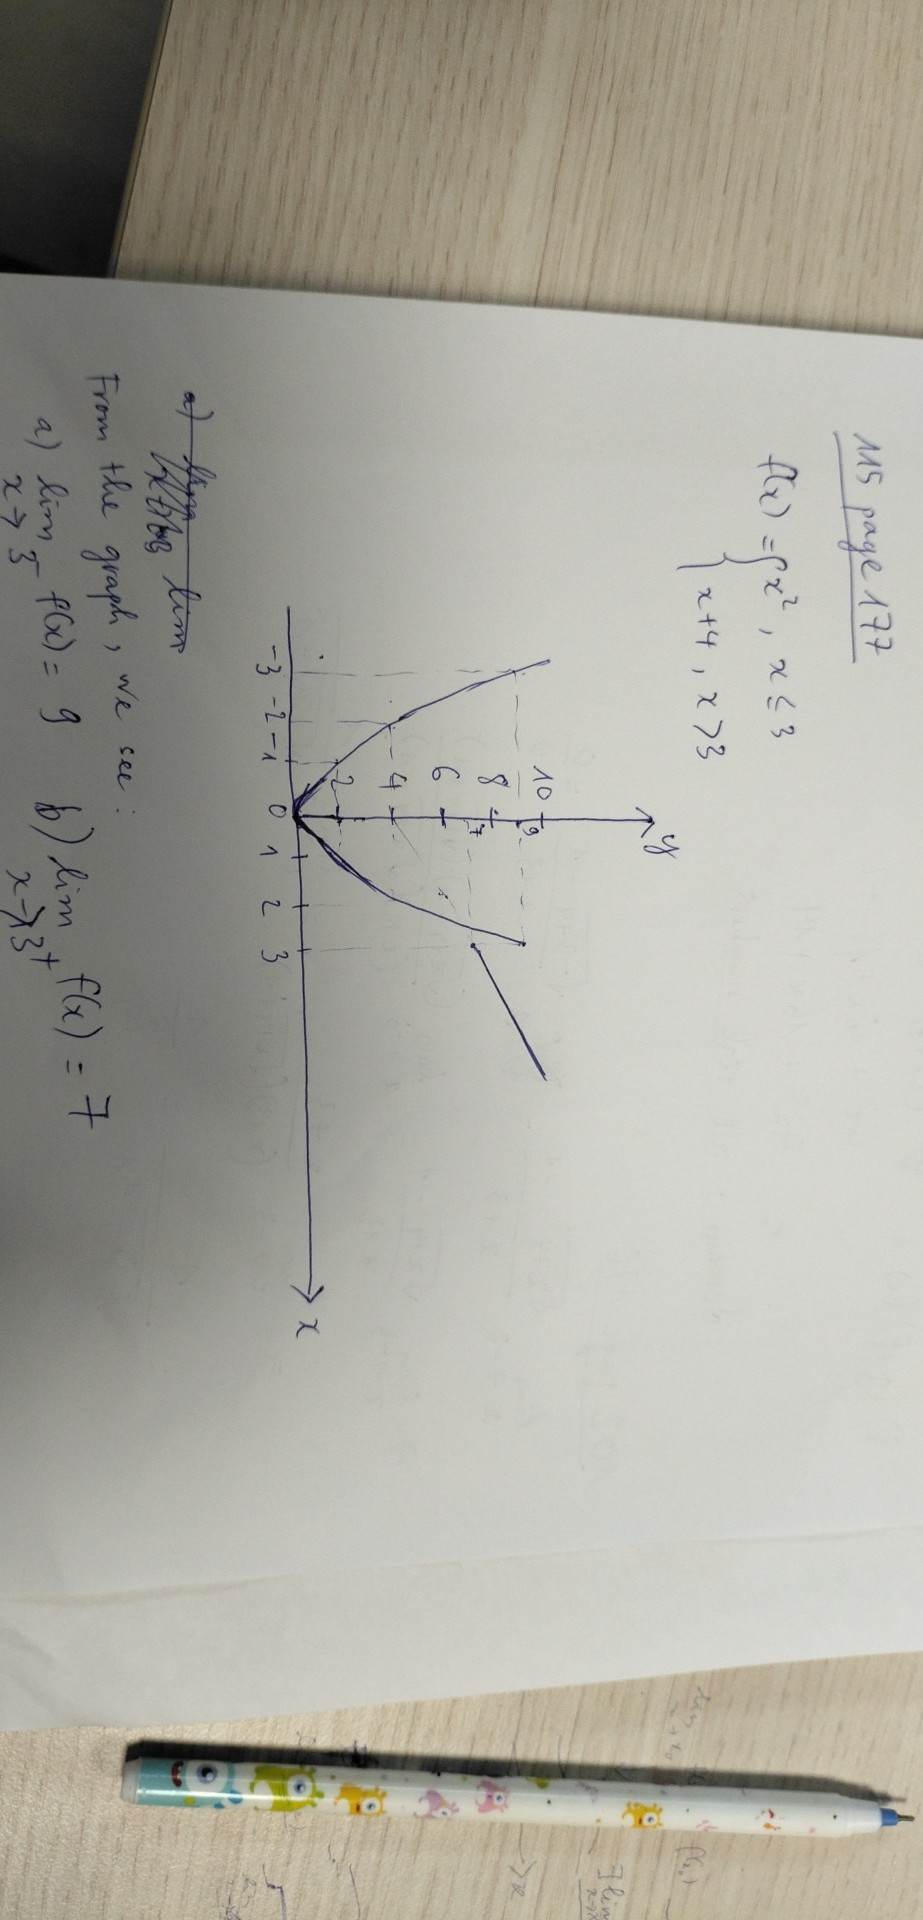 115 page 177
f(x) = { x², x ≤ 3
x+4, x>3
y
10
9
8
7
6
4
2
-3 -2 -1 0 1 2 3
x
a) lim lim
From the graph, we see:
a) lim f(x) = 9 b) lim f(x) = 7
x→3⁻ x→3⁺